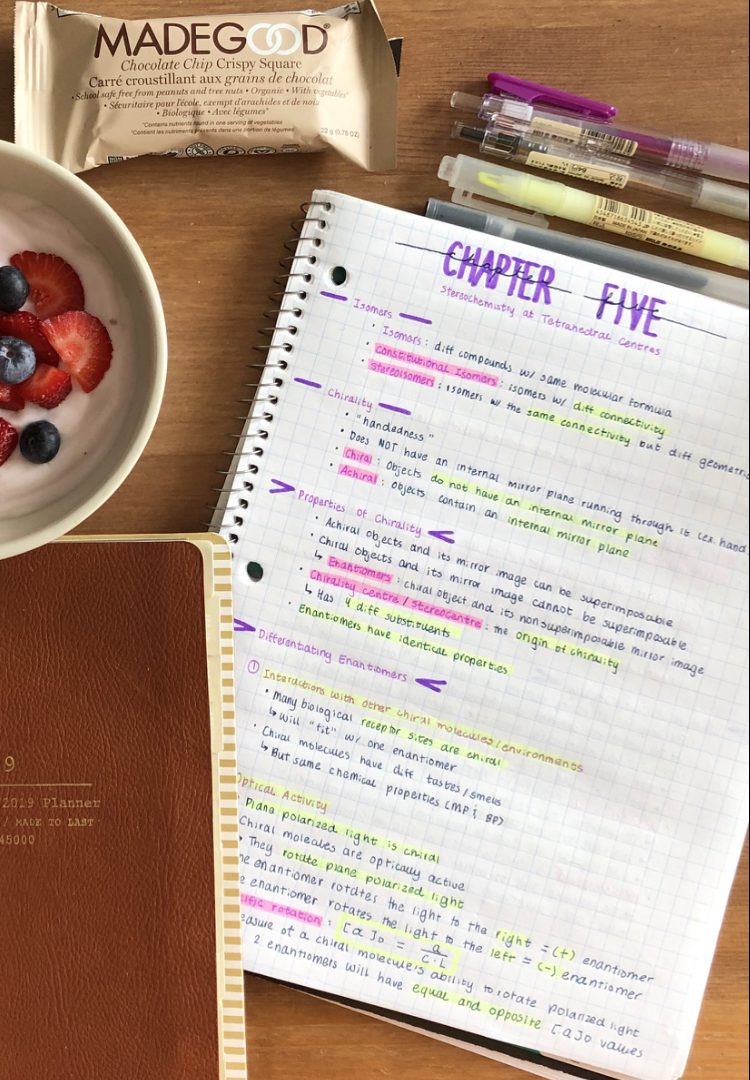 MADEGOOD®
Chocolate Chip Crispy Square
Carré croustillant aux grains de chocolat
• School safe free from peanuts and tree nuts • Organic • With vegetables*
• Sécuritaire pour l'école, exempt d'arachides et de noix
• Biologique • Avec légumes*
*Contains nutrients found in one serving of vegetables
*Contient les nutriments présents dans une portion de légumes
22 g (0.78 OZ)
CHAPTER FIVE
chapter five
Stereochemistry at Tetrahedral Centres
Isomers
• Isomers: diff compounds w/ same molecular formula
• Constitutional Isomers: isomers w/ diff connectivity
• Stereoisomers: isomers w/ the same connectivity but diff geometric
Chirality
• "handedness"
• Does NOT have an internal mirror plane running through it (ex. hand
• Chiral: Objects do not have an internal mirror plane
• Achiral: Objects contain an internal mirror plane
Properties of Chirality
• Achiral objects and its mirror image can be superimposable
• Chiral objects and its mirror image cannot be superimposable
↳ Enantiomers: chiral object and its nonsuperimposable mirror image
• Chirality centre/stereocentre: the origin of chirality
↳ Has 4 diff substituents
• Enantiomers have identical properties
Differentiating Enantiomers
① Interactions with other chiral molecules/environments
• Many biological receptor sites are chiral
↳ Will "fit" w/ one enantiomer
• Chiral molecules have diff tastes/smells
↳ But same chemical properties (MP & BP)
Optical Activity
Plane polarized light is chiral
Chiral molecules are optically active
They rotate plane polarized light
enantiomer rotates the light to the right = (+) enantiomer
enantiomer rotates the light to the left = (-) enantiomer
rotation: [α]D = α / C·L
of a chiral molecule's ability to rotate polarized light
2 enantiomers will have equal and opposite [α]D values
9
/2019 Planner
/ MADE TO LAST
45000